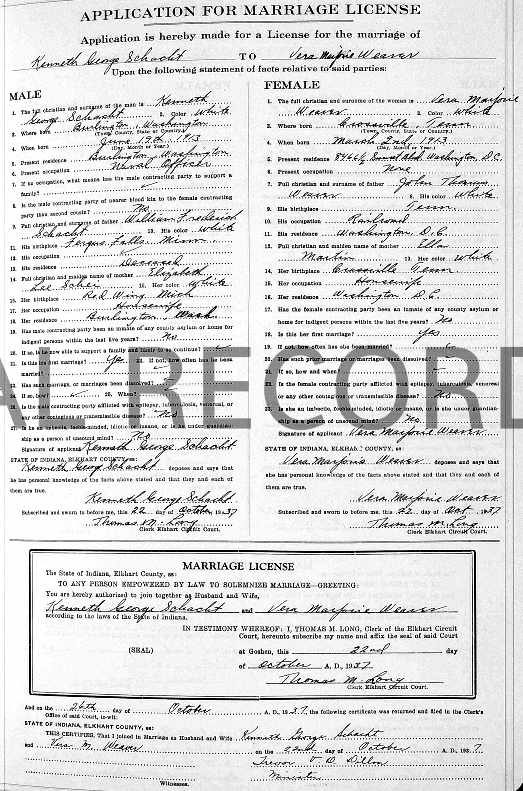 APPLICATION FOR MARRIAGE LICENSE
Application is hereby made for a License for the marriage of
Kenneth George Schacht TO Vera Marjorie Weaver
Upon the following statement of facts relative to said parties:
MALE
1. The full christian and surname of the man is Kenneth
George Schacht 2. Color White
3. Where born Burlington, Washington
(Town, County, State or Country)
4. When born June 19th 1913
(Day, Month or Year)
5. Present residence Burlington, Washington
6. Present occupation Naval Officer
7. If no occupation, what means has the male contracting party to support a
family?
8. Is the male contracting party of nearer blood kin to the female contracting
party than second cousin? No
9. Full christian and surname of father William Frederick
Schacht His color White
11. His birthplace Fergus Falls, Minn
12. His occupation
13. His residence Deceased
14. Full christian and maiden name of mother Elizabeth
Lee Her color White
16. Her birthplace Red Wing, Mich
17. Her occupation Housewife
18. Her residence Burlington, Wash
19. Has male contracting party been an inmate of any county asylum or home for
indigent persons within the last five years? No
20. If so, is he now able to support a family and likely to so continue?
21. Is this his first marriage? Yes 22. If not, how often has he been
married?
23. Has such marriage, or marriages been dissolved?
24. If so, how? 25. When?
26. Is the male contracting party afflicted with epilepsy, tuberculosis, venereal, or
any other contagious or transmissible disease? No
27. Is he an imbecile, feeble-minded, idiotic or insane, or is he under guardian-
ship as a person of unsound mind? No
Signature of applicant Kenneth George Schacht
STATE OF INDIANA, ELKHART COUNTY, ss:
Kenneth George Schacht deposes and says that
he has personal knowledge of the facts above stated and that they and each of
them are true.
Kenneth George Schacht
Subscribed and sworn to before me, this 22 day of October, 1937
Thomas M. Long
Clerk Elkhart Circuit Court.
FEMALE
1. The full christian and surname of the woman is Vera Marjorie
Weaver 2. Color White
3. Where born Crossville Tenn
(Town, County, State or Country)
4. When born March 2nd 1913
(Day, Month or Year)
5. Present residence Washington D.C.
6. Present occupation None
7. Full christian and surname of father John Thomas
Weaver 8. His color White
9. His birthplace Tenn
10. His occupation Railroad
11. His residence Washington, D.C.
12. Full christian and maiden name of mother Ella
Martin 13. Her color White
14. Her birthplace Crossville Tenn
15. Her occupation Housewife
16. Her residence Washington D.C.
17. Has the female contracting party been an inmate of any county asylum or
home for indigent persons within the last five years? No
18. Is this her first marriage? Yes
19. If not, how often has she been married?
20. Has such marriage or marriages been dissolved?
21. If so, how and when?
22. Is the female contracting party afflicted with epilepsy, tuberculosis, venereal
or any other contagious or transmissible disease? No
23. Is she an imbecile, feeble-minded, idiotic or insane, or is she under guardian-
ship as a person of unsound mind? No
Signature of applicant Vera Marjorie Weaver
STATE OF INDIANA, ELKHART COUNTY, ss:
Vera Marjorie Weaver deposes and says that
she has personal knowledge of the facts above stated and that they and each of
them are true.
Vera Marjorie Weaver
Subscribed and sworn to before me, this 22 day of Oct, 1937
Thomas M Long
Clerk Elkhart Circuit Court.
AL RECORD
MARRIAGE LICENSE
The State of Indiana, Elkhart County, ss:
TO ANY PERSON EMPOWERED BY LAW TO SOLEMNIZE MARRIAGE—GREETING:
You are hereby authorized to join together as Husband and Wife,
Kenneth George Schacht and Vera Marjorie Weaver
according to the laws of the State of Indiana.
IN TESTIMONY WHEREOF: I, THOMAS M. LONG, Clerk of the Elkhart Circuit
Court, hereunto subscribe my name and affix the seal of said Court
(SEAL) at Goshen, this 22nd day
of October A. D., 1937
Thomas M. Long
Clerk Elkhart Circuit Court.
And on the 26th day of October A. D., 1937, the following certificate was returned and filed in the Clerk's
Office of said Court, to-wit:
STATE OF INDIANA, ELKHART COUNTY, ss:
THIS CERTIFIES, That I joined in Marriage as Husband and Wife Kenneth George Schacht
and Vera M. Weaver on the 22nd day of October, A. D., 1937
Trevor D. Dillon
Minister
Witnesses.